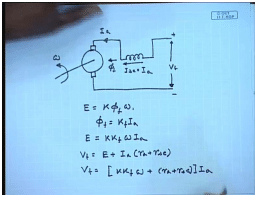 Ia
+
ω
φf
Ise = Ia
Vt
-
E = K φf ω,
φf = Kf Ia
E = K Kf ω Ia
Vt = E + Ia (ra + rse)
Vt = [ K Kf ω + (ra + rse) ] Ia